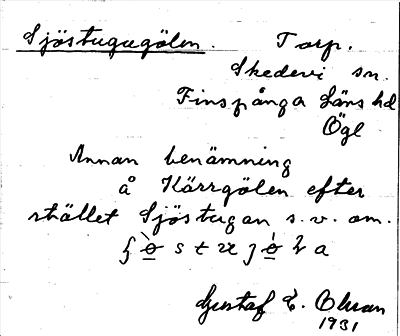 Sjöstugugölen. Torp.
Skedevi sn.
Finspånga Läns hd
Ögl
Annan benämning
å Kärrgölen efter
stället Sjöstugan s.v. om.
Gustaf E.
1931